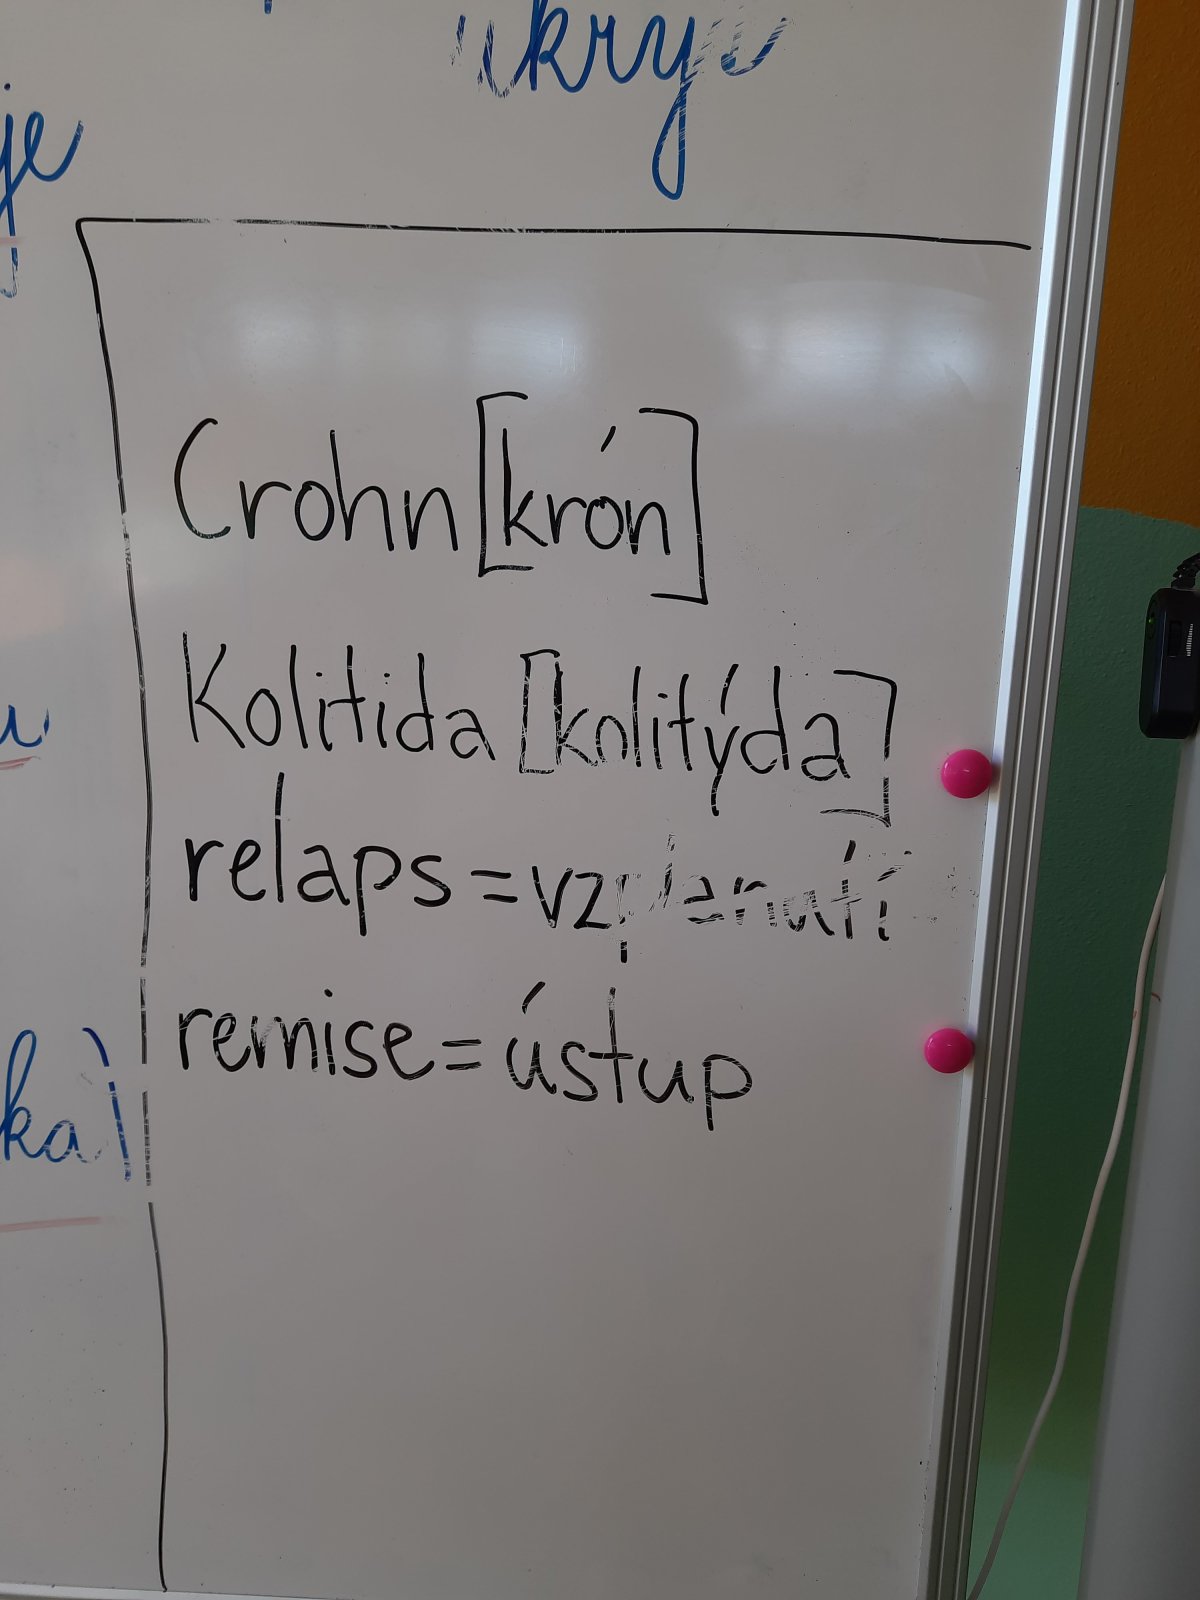 ukryje
je
Crohn [krón]
Kolitida [kolitýda]
relaps = vzplanutí
remise = ústup
ka)